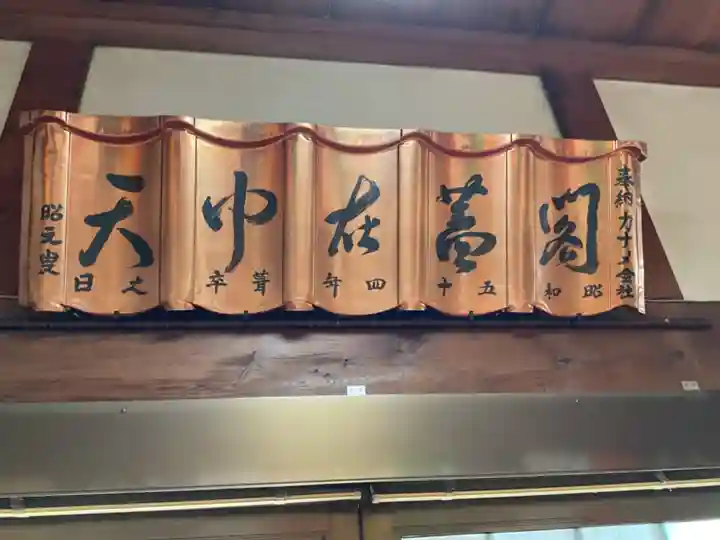 奉納カナメ会社
閣蓋在中天
昭和五十四年葺卒之日
昭元叟